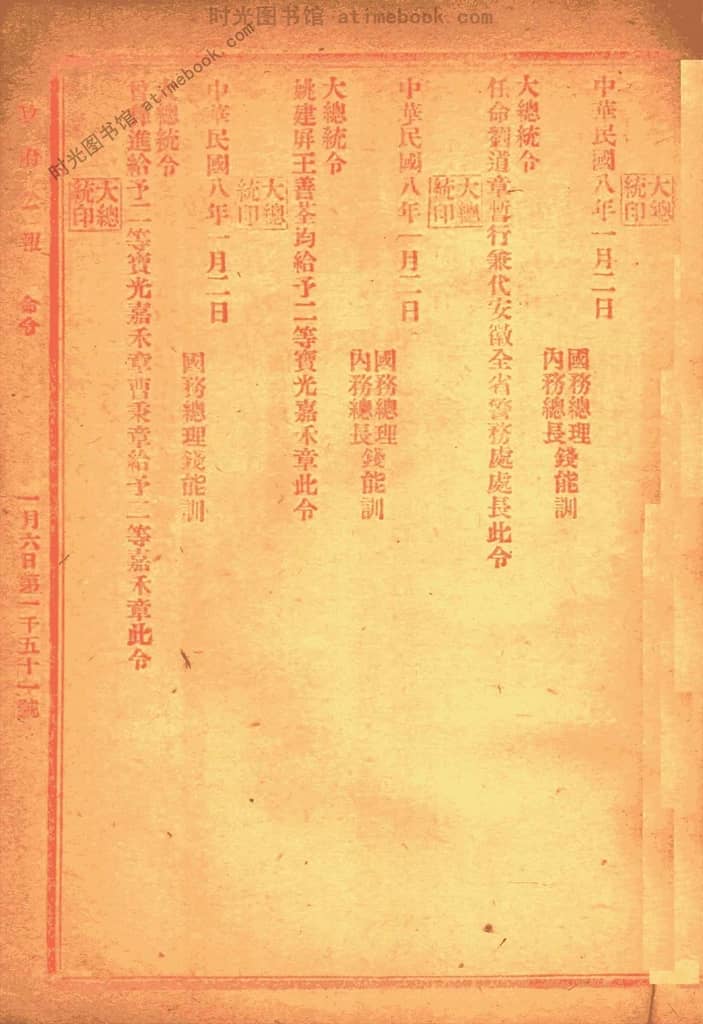 时光图书馆 atimebook.com
时光图书馆 atimebook.com
大總統印
中華民國八年一月二日
國務總理
內務總長錢能訓
大總統令
任命劉道章暫行兼代安徽全省警務處處長此令
大總統印
中華民國八年一月二日
國務總理
內務總長錢能訓
大總統令
姚建屏王善荃均給予二等寶光嘉禾章此令
大總統印
中華民國八年一月二日
國務總理錢能訓
大總統令
進給予二等寶光嘉禾章曹秉章給予二等嘉禾章此令
大總統印
政府公報 命令 一月六日第一千五十一號